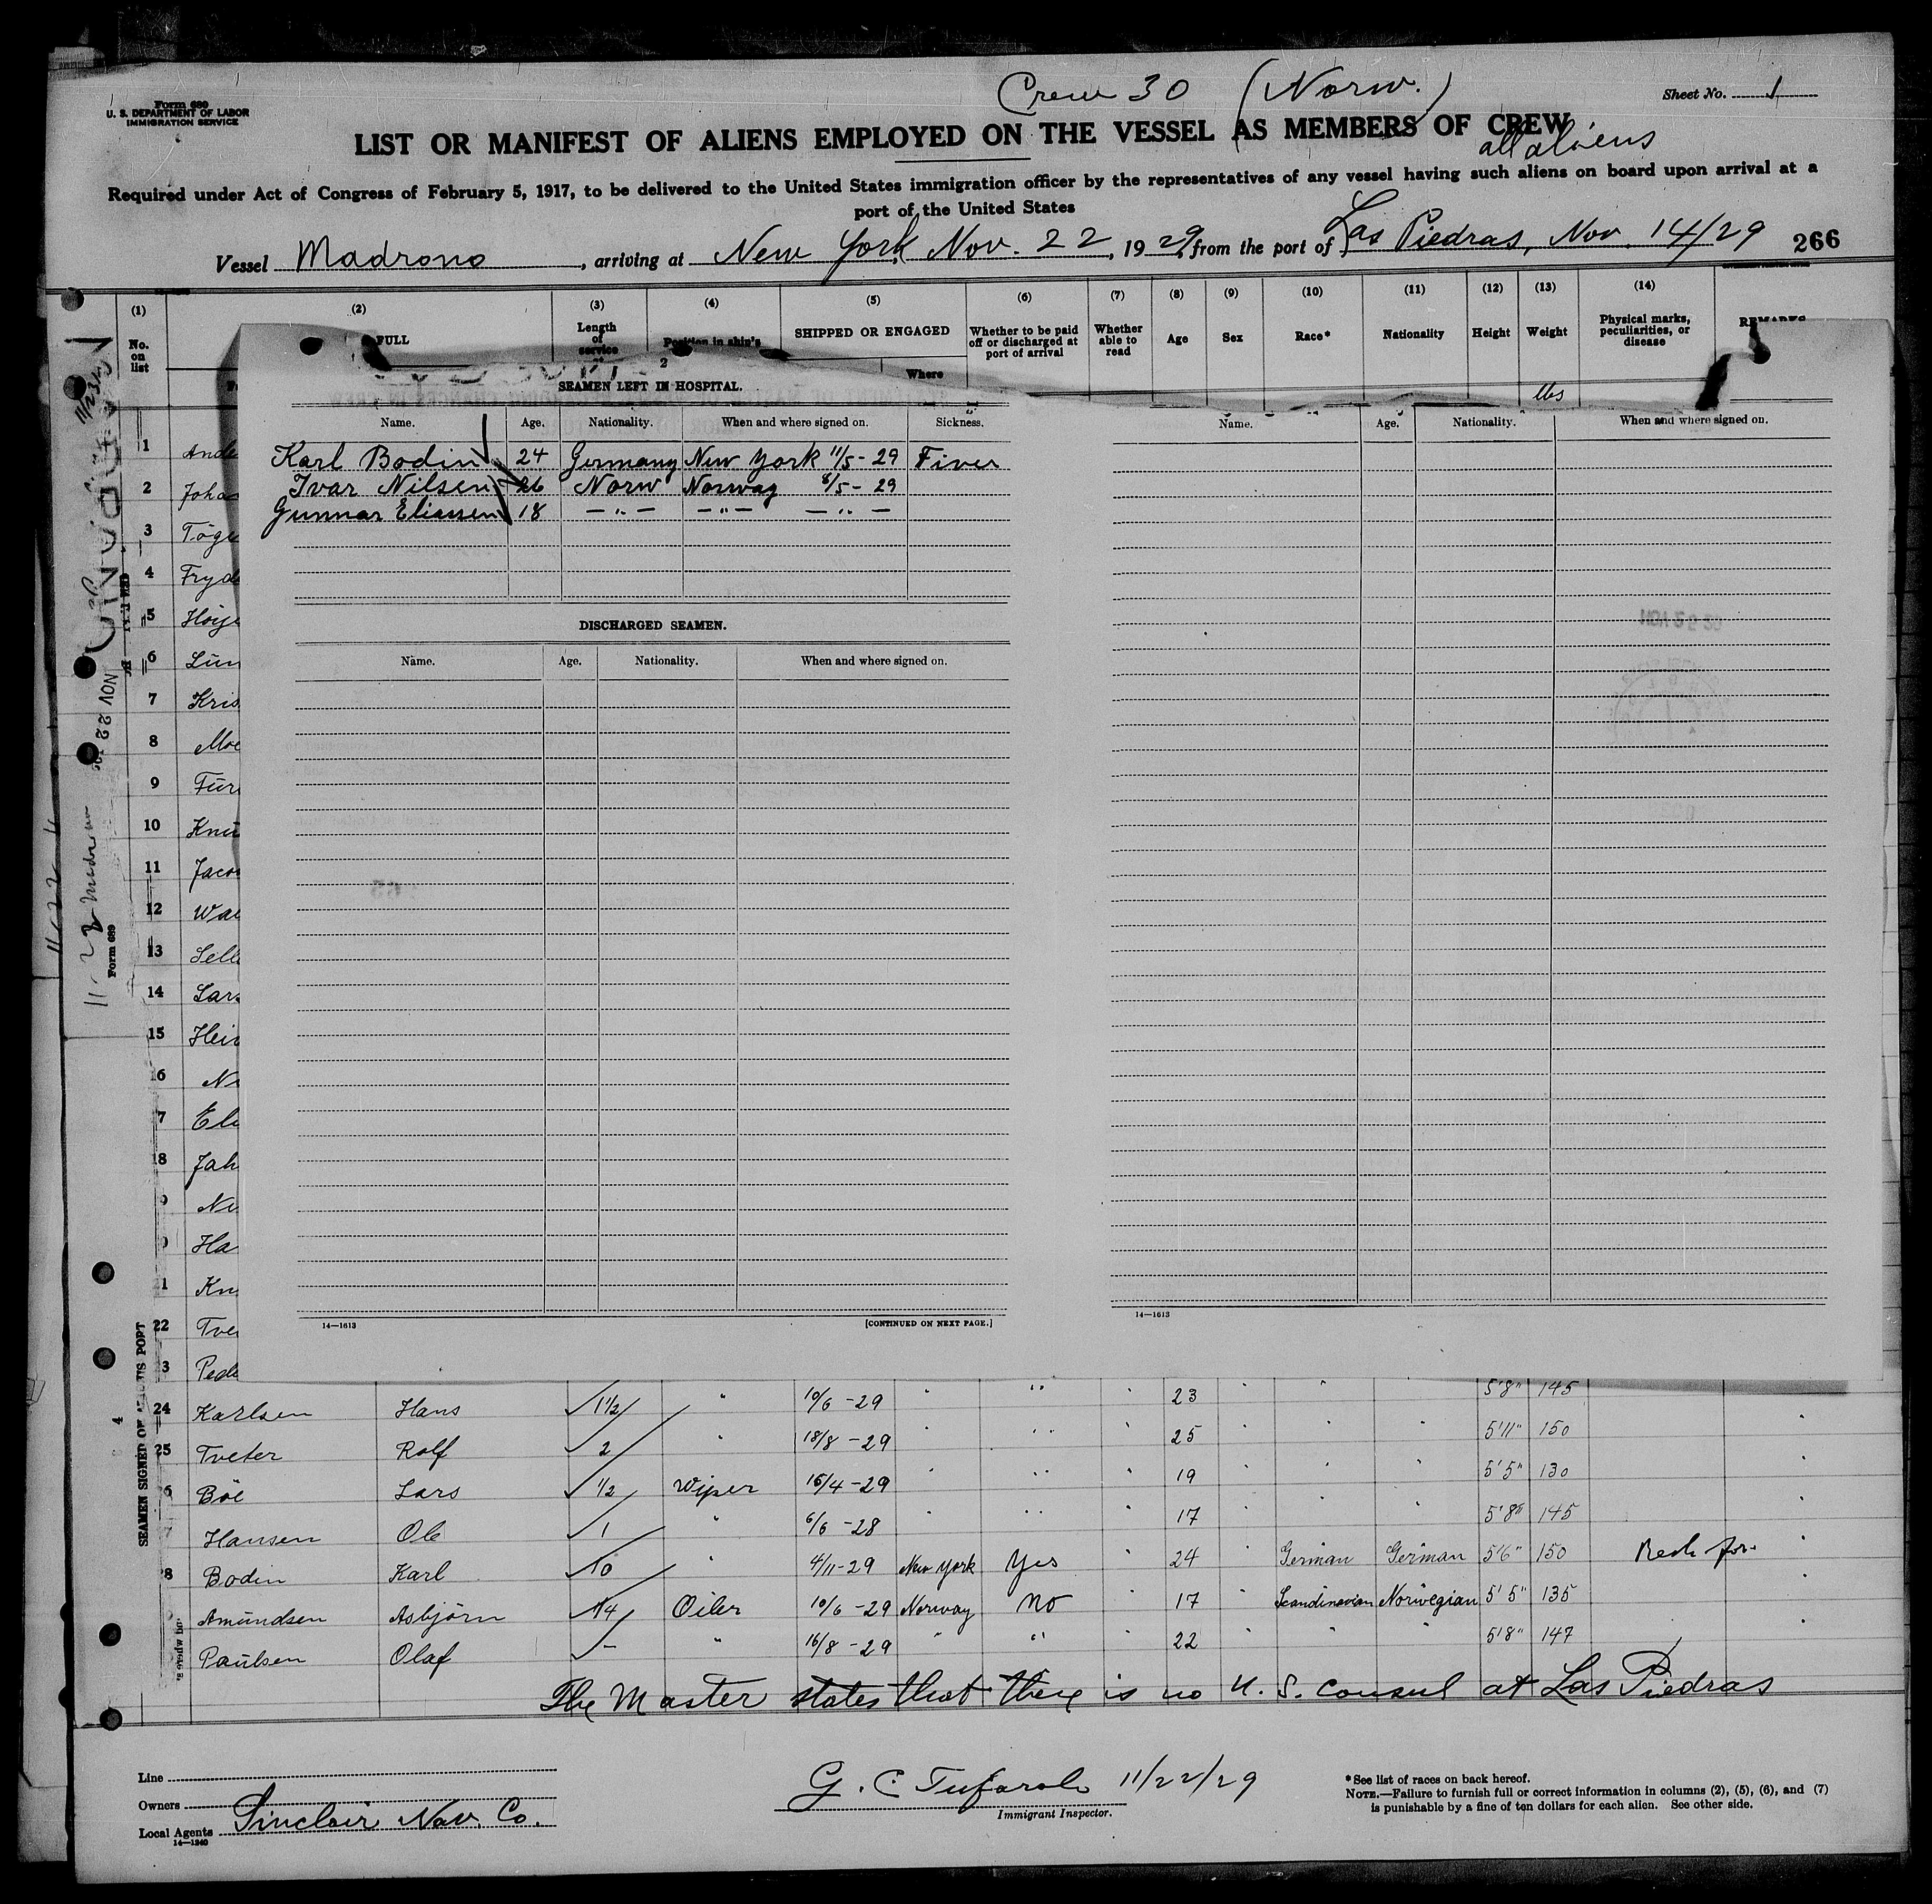 Crew 30 (Norw.)
all aliens
Form 689
U. S. DEPARTMENT OF LABOR
IMMIGRATION SERVICE
Sheet No. 1
LIST OR MANIFEST OF ALIENS EMPLOYED ON THE VESSEL AS MEMBERS OF CREW
Required under Act of Congress of February 5, 1917, to be delivered to the United States immigration officer by the representatives of any vessel having such aliens on board upon arrival at a
port of the United States
Vessel Madrono, arriving at New York, Nov. 22, 1929, from the port of Las Piedras, Nov. 14/29
266
(1) (2) (3) (4) (5) (6) (7) (8) (9) (10) (11) (12) (13) (14)
No. on list
FULL
Length of service
Position in ship's
SHIPPED OR ENGAGED
Where
Whether to be paid off or discharged at port of arrival
Whether able to read
Age
Sex
Race*
Nationality
Height
Weight
Physical marks, peculiarities, or disease
REMARKS
lbs
2
SEAMEN LEFT IN HOSPITAL.
Name. Age. Nationality. When and where signed on. Sickness.
Karl Bodin 24 Germany New York 11/5-29 Fiver
Ivar Nilsen 26 Norw Norway 8/5-29
Gunnar Eliassen 18 — " — — " — — " —
DISCHARGED SEAMEN.
Name. Age. Nationality. When and where signed on.
14—1613
[CONTINUED ON NEXT PAGE.]
Name. Age. Nationality. When and where signed on.
14—1613
1 Ande
2 Joha
3 Töge
4 Fryd
5 Höije
6 Lün
7 Kris
8 Moe
9 Für
10 Knü
11 Jaco
12 Wal
13 Selle
14 Lars
15 Hein
16 Ni
17 Ele
18 Jah
Ni
Ha
Kn
22 Tve
Pede
24 Karlsen Hans 1½ " 10/6-29 " " " 23 " " " 5'8" 145
25 Tveter Rolf 2 " 18/8-29 " " " 25 " " " 5'11" 150
6 Böe Lars ½ Wiper 15/4-29 " " " 19 " " " 5'5" 130
7 Hansen Ole 1 " 6/6-28 " " " 17 " " " 5'8" 145
8 Bodin Karl 10 " 4/11-29 New York Yes " 24 " German German 5'6" 150
Amündsen Asbjörn 14 Oiler 10/6-29 Norway No " 17 " Scandinavian Norwegian 5'5" 135
Paülsen Olaf — " 16/8-29 " " " 22 " " " 5'8" 147
The Master states that there is no U. S. consul at Las Piedras
SEAMEN SIGNED ON
NOV 22
11-22 Madrono
Form 689
Line
Owners
Local Agents Sinclair Nav. Co.
14—1240
G. C. Tufarolo 11/22/29
Immigrant Inspector.
*See list of races on back hereof.
NOTE.—Failure to furnish full or correct information in columns (2), (5), (6), and (7)
is punishable by a fine of ten dollars for each alien. See other side.